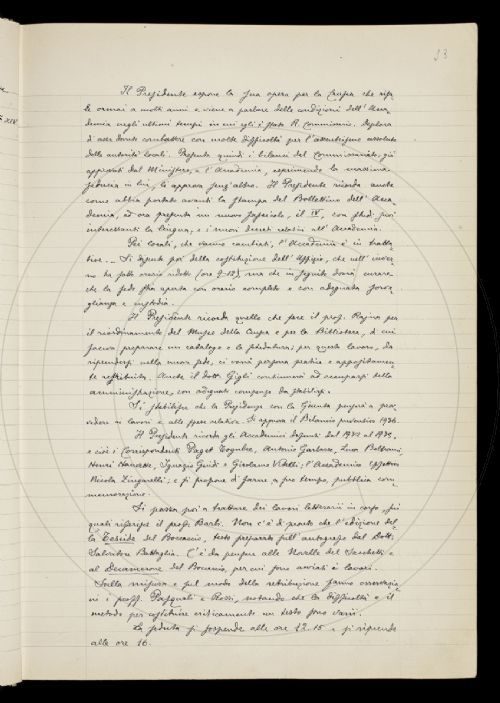 33
Il Presidente espone la sua opera per la Crusca che risa-
le ormai a molti anni e viene a parlare delle condizioni dell'Acca-
demia negli ultimi tempi in cui egli è stato R. Commissario. Dichiara
d'aver dovuto combattere con molte difficoltà per l'assenteismo assoluto
delle autorità locali. Presenta quindi i bilanci del Commissariato, già
approvati dal Ministero, e l'Accademia, esprimendo la massima
fiducia in lui, li approva senz'altro. Il Presidente ricorda anche
come abbia portato avanti la stampa del Bollettino dell'Acca-
demia, ed ora presenta un nuovo fascicolo, il IV, con studi
interessanti la lingua, e i nuovi decreti relativi all'Accademia.
Pei locali, che vanno cambiati, l'Accademia è in tratta-
tive. — Si discute poi della costituzione dell'Uffizio, che nell'inver-
no ha fatto orario ridotto (ore 9-12), ma che in seguito dovrà curare
che la sede stia aperta con orario completo e con adeguata sorve-
glianza e custodia.
Il Presidente ricorda quello che fece il prof. Rajna per
il riordinamento del Museo della Crusca e per la Biblioteca, di cui
faceva preparare un catalogo e la schedatura; per questo lavoro, da
riprendersi nella nuova sede, ci vorrà persona pratica e appositamen-
te retribuita. Anche il dott. Gigli continuerà ad occuparsi della
amministrazione, con adeguato compenso da stabilirsi.
Si stabilisce che la Presidenza con la Giunta penserà a prov-
vedere ai lavori e alle spese relative. Si approva il Bilancio preventivo 1936.
Il Presidente ricorda gli Accademici defunti dal 1932 al 1935,
e cioè i Corrispondenti Paget Toynbee, Antonio Garbasso, Luca Beltrami,
Henri Hauvette, Ignazio Guidi e Girolamo Vitelli; l'Accademico effettivo
Nicola Zingarelli; e si propone di farne, a suo tempo, pubblica com-
memorazione.
Si passa poi a trattare dei lavori letterarii in corso, sui
quali riferisce il prof. Barbi. Non c'è di pronto che l'edizione del-
la Teseide del Boccaccio, testo preparato sull'autografo dal Dott.
Salvatore Battaglia. C'è da pensare alle Novelle del Sacchetti e
al Decamerone del Boccaccio, per cui sono avviati i lavori.
Sulla misura e sul modo della retribuzione fanno osservazio-
ni i proff. Pasquali e Rossi, notando che la difficoltà e il
metodo per costituire criticamente un testo sono varii.
La seduta si sospende alle ore 12.15 e si riprende
alle ore 16.